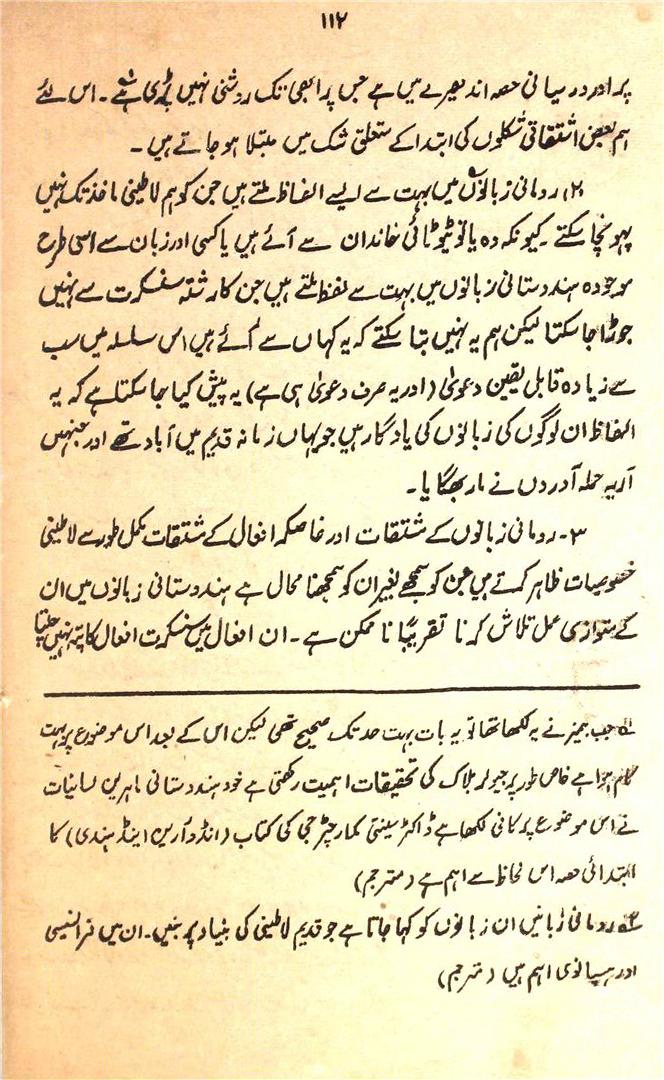 ۱۱۲
پر اور درمیانی حصہ اندھیرے میں ہے جس پر ابھی تک روشنی نہیں پڑی ہے۔ اس لئے
ہم بعض اشتقاقی شکلوں کی ابتدا کے متعلق شک میں مبتلا ہو جاتے ہیں۔
۲) رومانی زبانوں میں بہت سے ایسے الفاظ ملتے ہیں جن کو ہم لاطینی ماخذ تک نہیں
پہونچا سکتے۔ کیونکہ وہ یا تو ٹیوٹانی خاندان سے آئے ہیں یا کسی اور زبان سے اسی طرح
موجودہ ہندوستانی زبانوں میں بہت سے لفظ ملتے ہیں جن کا رشتہ سنسکرت سے نہیں
جوڑا جا سکتا لیکن ہم یہ نہیں بتا سکتے کہ یہ کہاں سے آئے ہیں اس سلسلہ میں سب
سے زیادہ قابل یقین دعویٰ (اور یہ صرف دعویٰ ہی ہے) یہ پیش کیا جا سکتا ہے کہ یہ
الفاظ ان لوگوں کی زبانوں کی یادگار ہیں جو یہاں زمانہ قدیم میں آباد تھے اور جنہیں
آریہ حملہ آوردں نے مار بھگایا۔
۳۔ رومانی زبانوں کے مشتقات اور خاصکر افعال کے مشتقات مکمل طور سے لاطینی
خصوصیات ظاہر کرتے ہیں جن کو سمجھے بغیر ان کو سمجھنا محال ہے ہندوستانی زبانوں میں ان
کے متوازی عمل تلاش کرنا تقریباً نا ممکن ہے۔ ان افعال میں سنسکرت افعال کا پتہ نہیں چلتا
جب بیمز نے یہ لکھا تھا تو یہ بات بہت حد تک صحیح تھی لیکن اس کے بعد اس موضوع پر بہت
کام ہوا ہے خاص طور پر جیولز بلاک کی تحقیقات اہمیت رکھتی ہے خود ہندوستانی ماہرین لسانیات
نے اس موضوع پر کافی لکھا ہے ڈاکٹر سینتی کمار چٹرجی کی کتاب (انڈو آرین اینڈ ہندی) کا
ابتدائی حصہ اس لحاظ سے اہم ہے (مترجم)
رومانی زبانیں ان زبانوں کو کہا جاتا ہے جو قدیم لاطینی کی بنیاد پر بنیں۔ ان میں فرانسیسی
اور ہسپانوی اہم ہیں (مترجم)